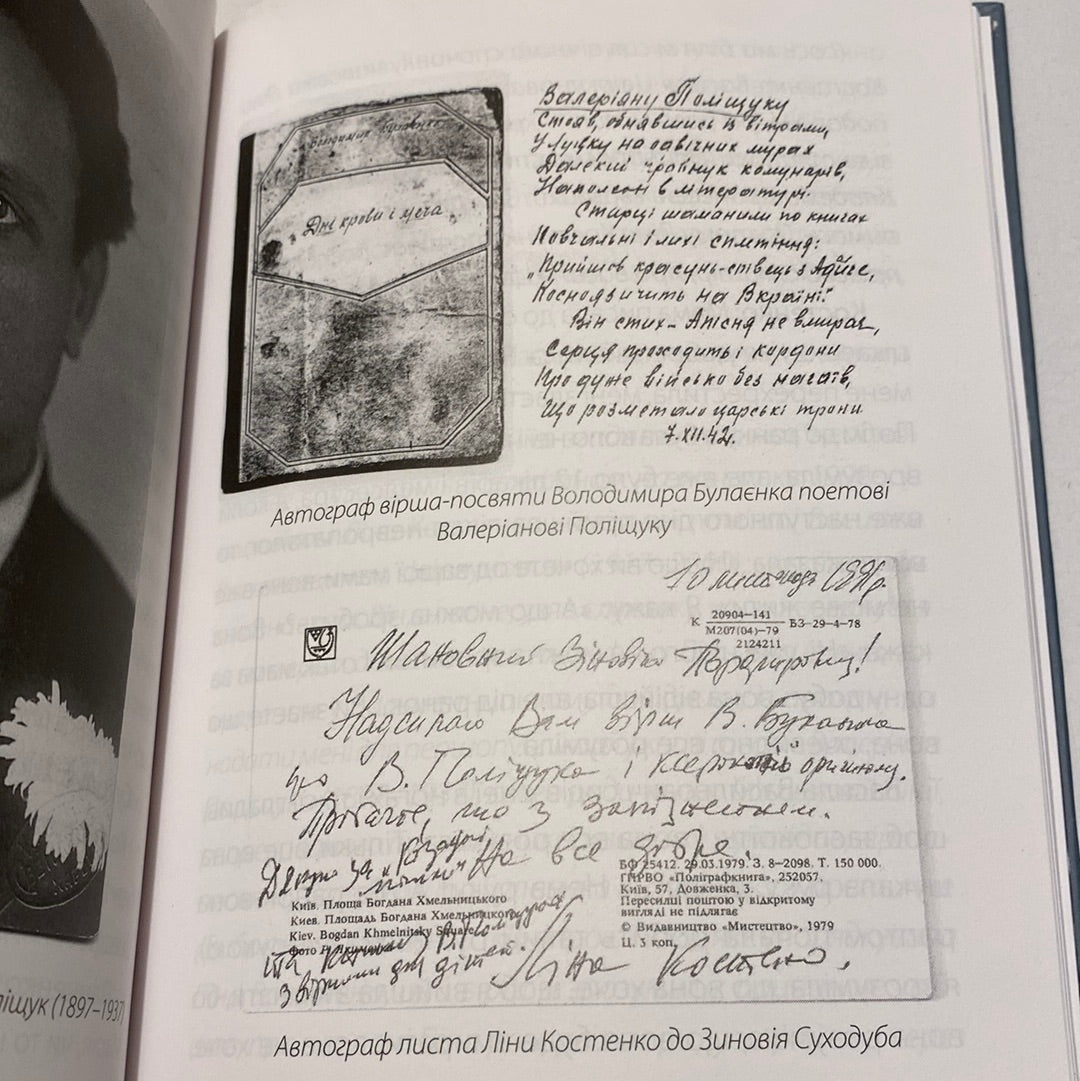 Володимир Булаєнко
Дні крови і меча
Валеріяну Поліщуку
Стояв, обнявшись із вітрами,
У Луцьку на одвічних мурах
Далекий правнук комунарів,
Наполеон в літературі.
Старці шаманили по книгах
Повчальні і лихі сплетіння:
„Прийшов красунь-співець з Адиге,
Косноязичить на Вкраїні."
Він стих – А пісня не вмирає,
Серця проходить і кордони
Про дуже військо без нагаїв,
Що розметало царські трони
7.XII.42.
Автограф вірша-посвяти Володимира Булаєнка поетові
Валеріанові Поліщуку
10 листопада 1991 р.
К 20904–141
М207(04)–79 БЗ–29–4–78
2124211
Шановний Зіновій
Надсилаю Вам вірш В. Булаєнка
до В. Поліщука і ксерокопію оригіналу.
Пробачте, що з запізненням.
На все добре.
Дякую за
БФ 25412. 29.03.1979. З. 8–2098. Т. 150 000.
ГПРВО «Поліграфкнига», 252057.
Київ, 57, Довженка, 3.
Пересилці поштою у відкритому
вигляді не підлягає
© Видавництво «Мистецтво», 1979
Ц. 3 коп.
Київ. Площа Богдана Хмельницького
Киев. Площадь Богдана Хмельницкого
Kiev. Bogdan Khmelnitsky Square
Фото
та В. Поліщука
з віршами для дітей.
Ліна Костенко.
Автограф листа Ліни Костенко до Зиновія Суходуба
ліщук (1897–1937)